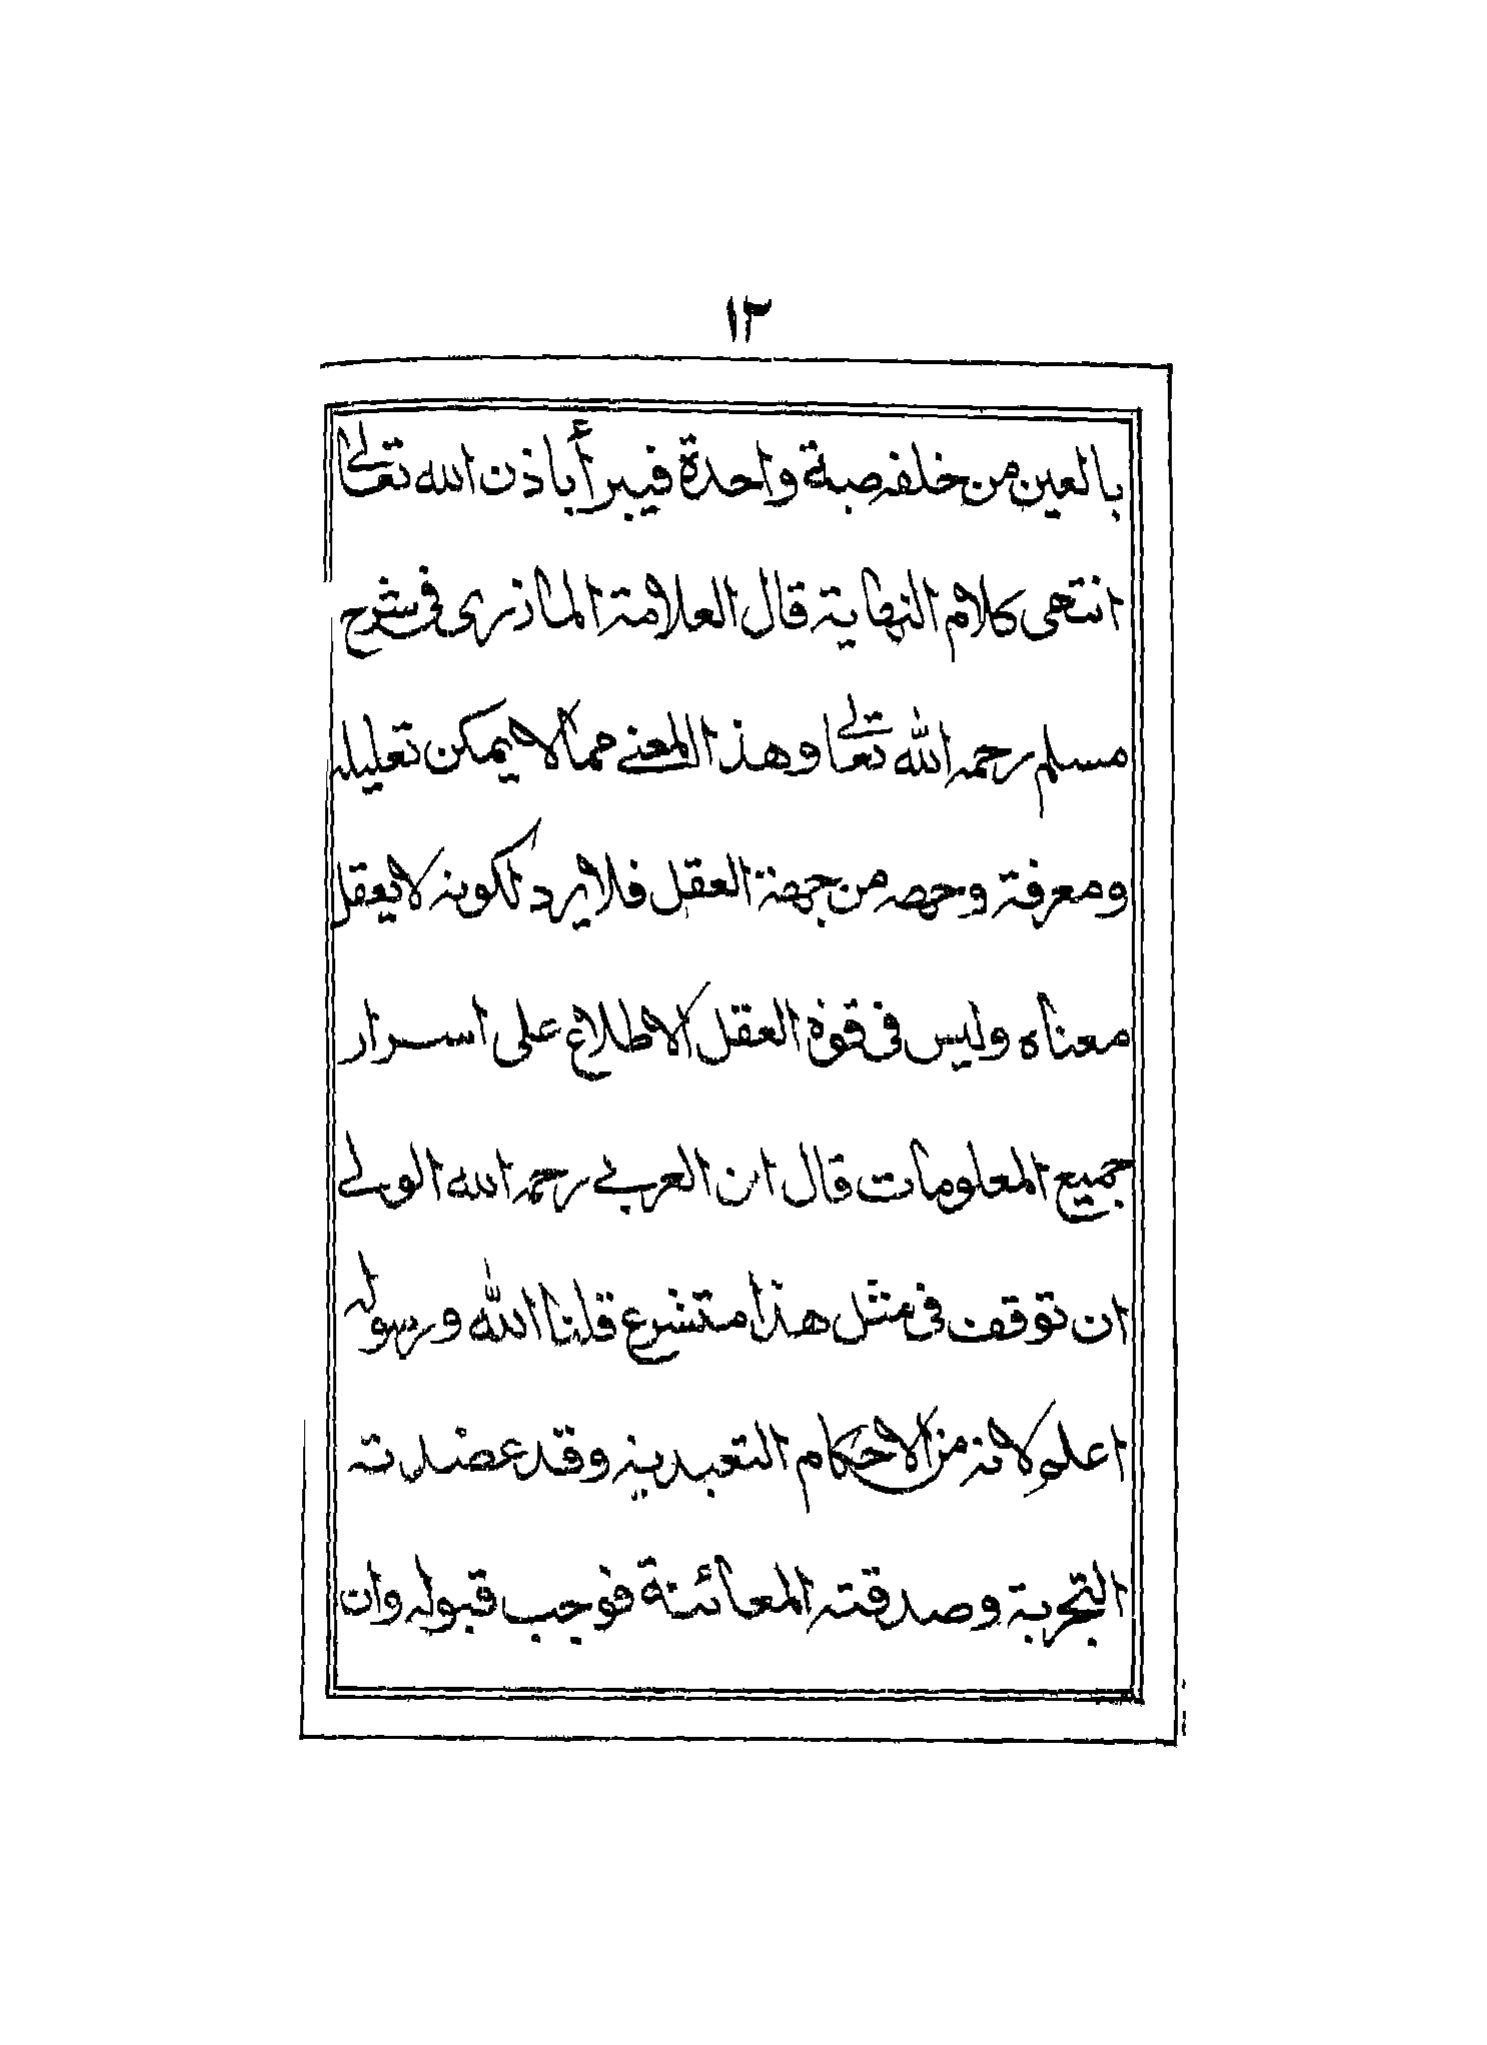 ١٣
بالعين من خلفه صبة واحدة فيبرأ باذن الله تعالى
انتهى كلام النهاية قال العلامة الماذرى فى شرح
مسلم رحمه الله تعالى وهذا المعنى مما لا يمكن تعليله
ومعرفة وجهه من جهة العقل فلا يرد لكونه لا يعقل
معناه وليس فى قوة العقل الاطلاع على اسرار
جميع المعلومات قال ابن العربي رحمه الله الولي
ان توقف فى مثل هذا متشرع قلنا الله ورسوله
اعلم لانه من الاحكام التعبديه وقد عضدته
التجربة وصدقته المعائنة فوجب قبوله وان